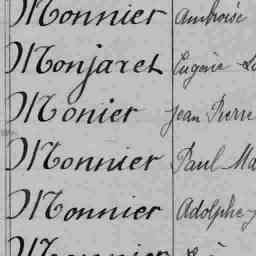 Monnier Ambroise
Monjaret Eugène
Monier Jean Pierre
Monnier Paul
Monnier Adolphe